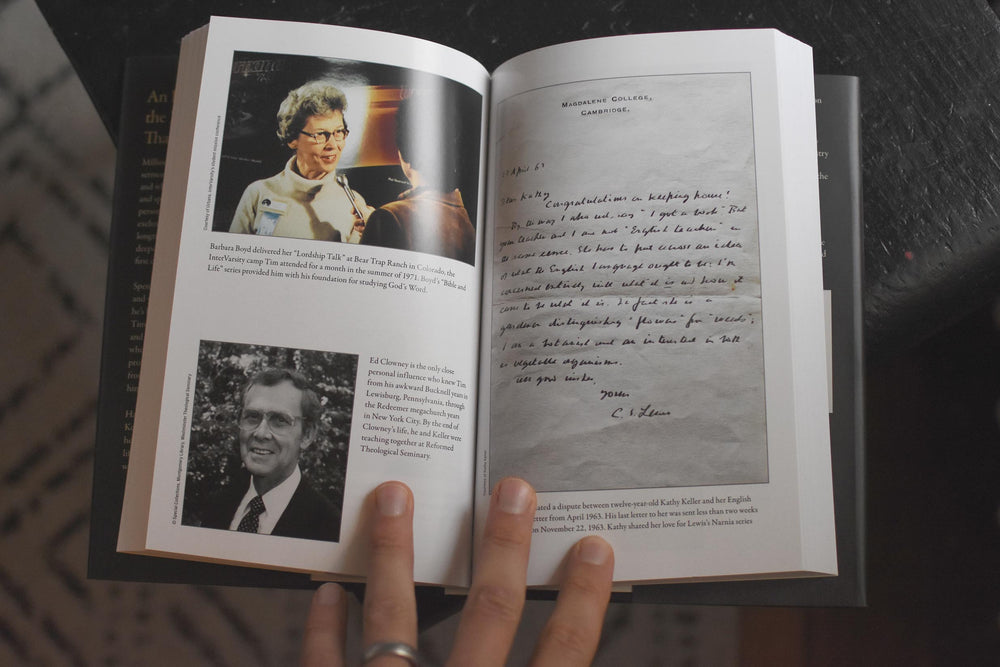 Courtesy of Urbana, InterVarsity's student missions conference
Barbara Boyd delivered her “Lordship Talk” at Bear Trap Ranch in Colorado, the
InterVarsity camp Tim attended for a month in the summer of 1971. Boyd's “Bible and
Life” series provided him with his foundation for studying God's Word.
© Special Collections, Montgomery Library, Westminster Theological Seminary
Ed Clowney is the only close
personal influence who knew Tim
from his awkward Bucknell years in
Lewisburg, Pennsylvania, through
the Redeemer megachurch years
in New York City. By the end of
Clowney's life, he and Keller were
teaching together at Reformed
Theological Seminary.
MAGDALENE COLLEGE,
CAMBRIDGE.
April 63
Dear Kathy
Congratulations on keeping house!
By the way I also wd. say "I got a book" But
your teacher and I are not "English teachers" in
the same sense. She has to put across an idea
of what the English language ought to be: I'm
concerned entirely with what it is and however it
came to be what it is. In fact she is a
gardener distinguishing "flowers" from "weeds";
I am a botanist and am interested in both
as vegetable organisms.
All good wishes,
yours
C. S. Lewis
Courtesy of Kathy Keller
ated a dispute between twelve-year-old Kathy Keller and her English
etter from April 1963. His last letter to her was sent less than two weeks
on November 22, 1963. Kathy shared her love for Lewis's Narnia series